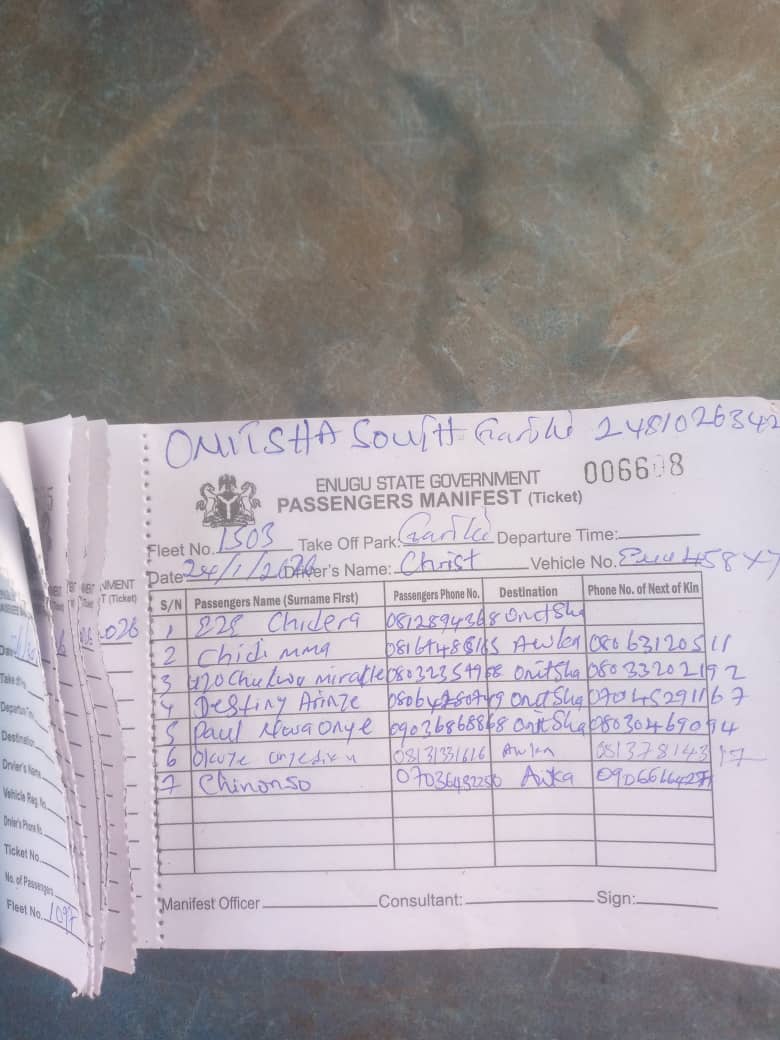 ONITSHA SOUTH Gariki 2481026342
ENUGU STATE GOVERNMENT 006608
PASSENGERS MANIFEST (Ticket)
Fleet No. 1503 Take Off Park: Gariki Departure Time:
Date 24/1/2026 Driver's Name: Christ Vehicle No.
S/N Passengers Name (Surname First) Passengers Phone No. Destination Phone No. of Next of Kin
1 Chidera 0812894368 Onitsha
2 Chidi mma Awka 08063120511
3 miracle 08032354968 Onitsha 08033202192
4 Destiny Arinze Onitsha 07014529167
5 Paul Nwaonye 09036868868 Onitsha 08030469094
6 08131331616 Awka
7 Chinonso Awka
Manifest Officer Consultant: Sign:
NMENT
T (Ticket)
026
Date
Take off
Departure
Destination
Driver's Name
Vehicle Reg. No.
Driver's Phone No.
Ticket No.
No. of Passengers
Fleet No. 1097